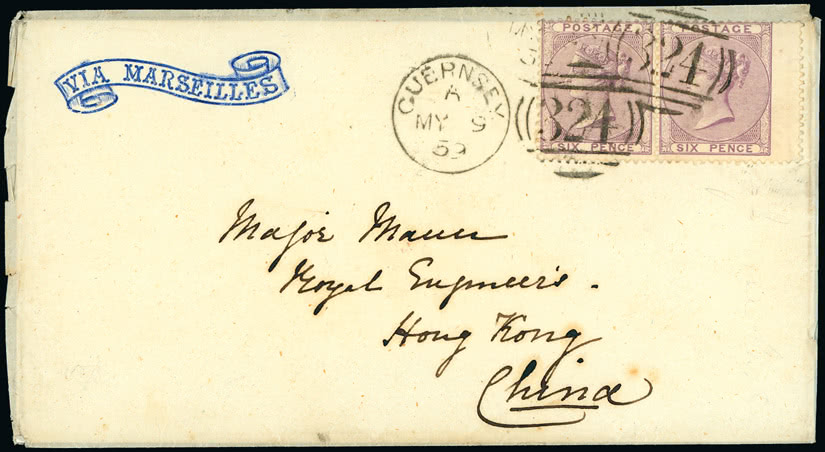 VIA MARSEILLES
GUERNSEY
A
MY 9
59
POSTAGE
324
SIX PENCE
POSTAGE
324
SIX PENCE
Major
Royal Engineers.
Hong Kong
China